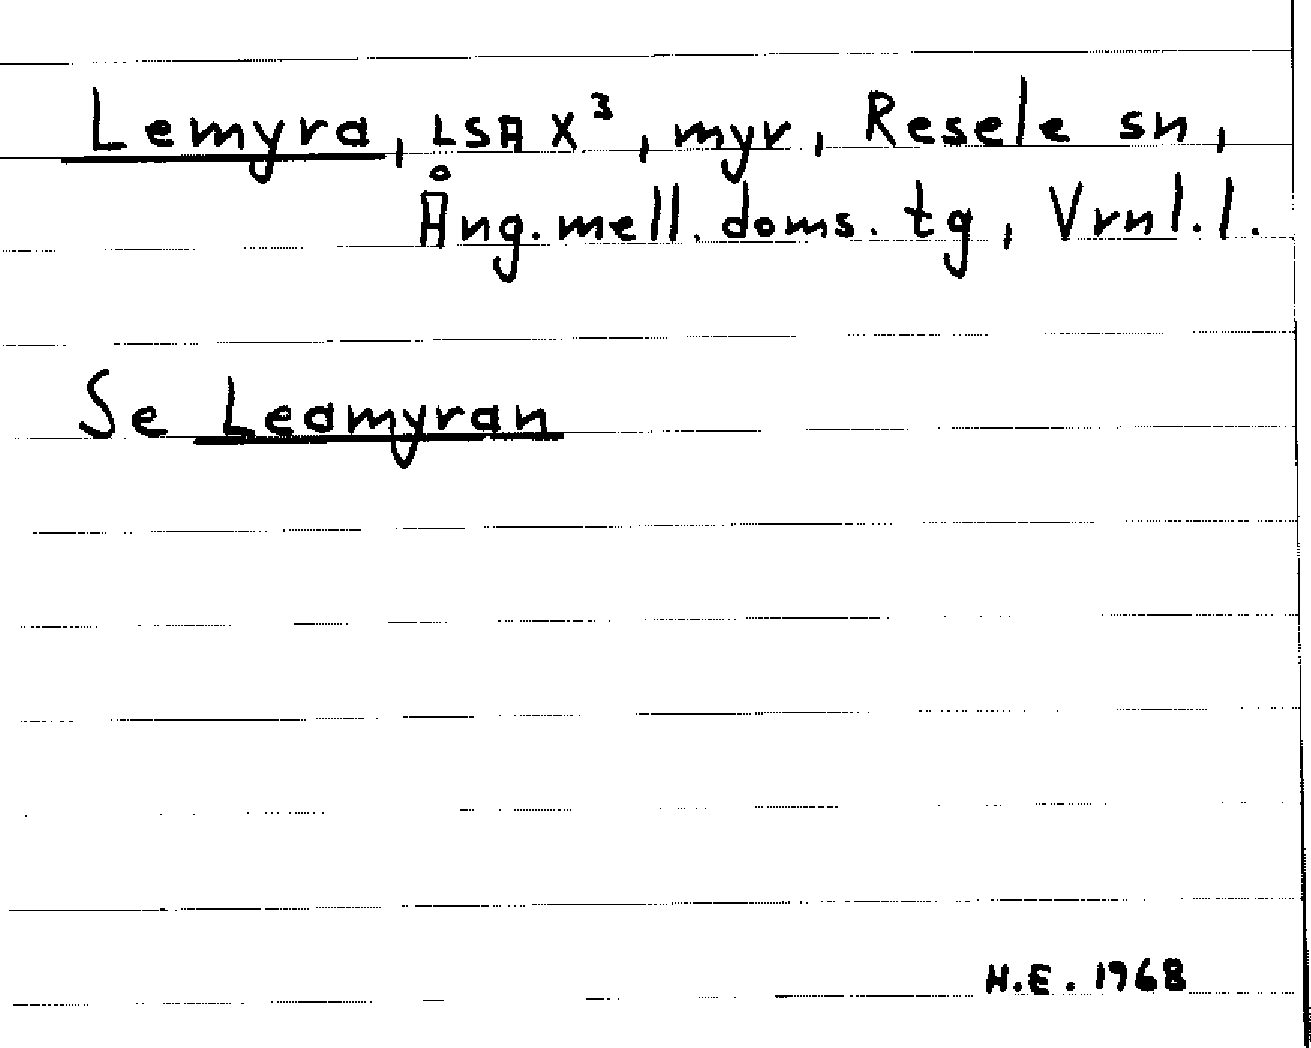 Lemyra, LSA X³, myr, Resele sn,
Ång. mell. doms. tg, Vrnl. l.
Se Leamyran
H.E. 1968